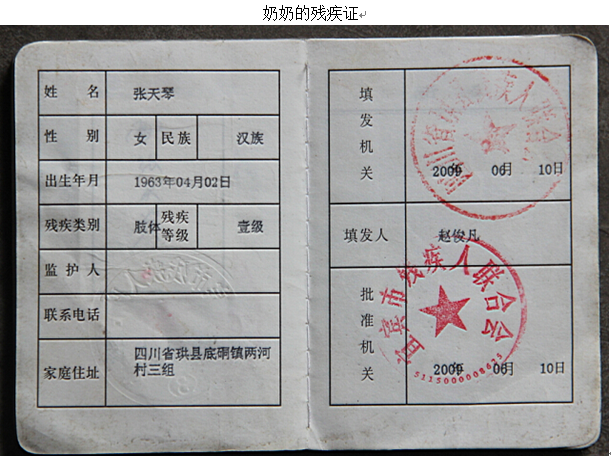 奶奶的残疾证
姓 名 张天琴
性 别 女 民族 汉族
出生年月 1963年04月02日
残疾类别 肢体 残疾等级 壹级
监护人
联系电话
家庭住址 四川省珙县底硐镇两河
村三组
填发机关
四川省珙县残疾人联合会
2009年 06月 10日
填发人 赵俊凡
批准机关
宜宾市残疾人联合会
5115000008625
2009年 06月 10日